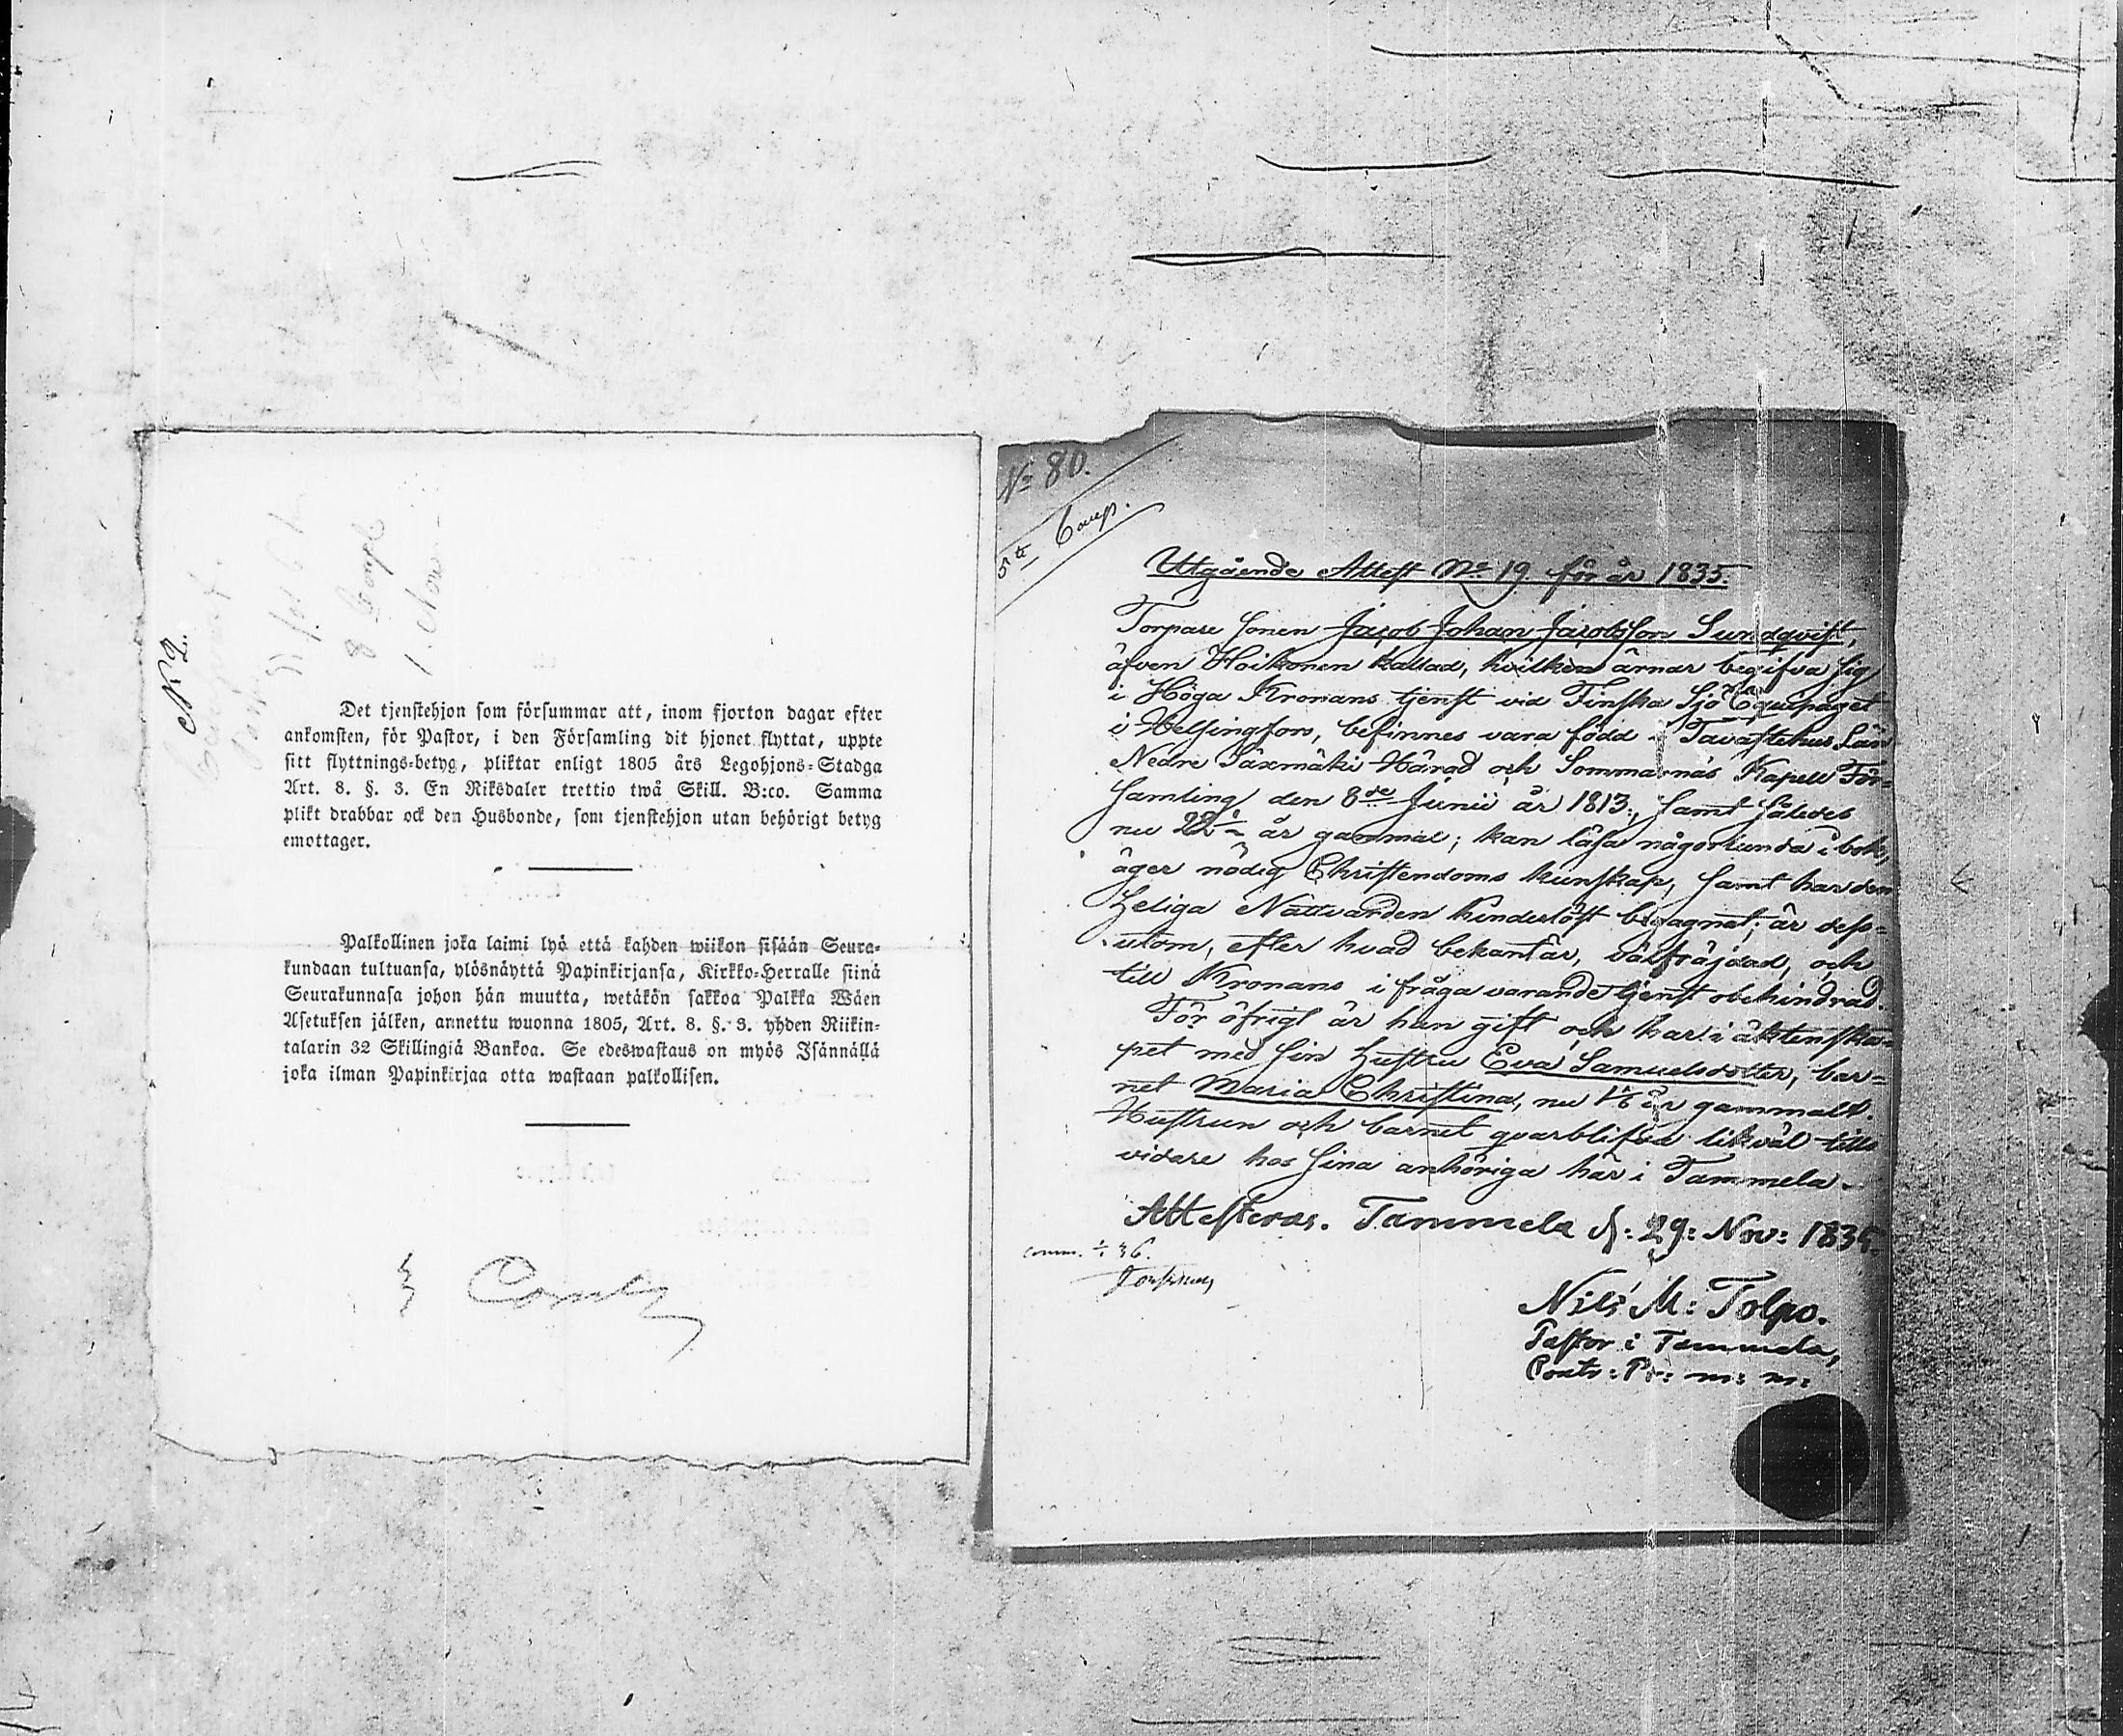 N: 2.
8 Comp
1. Nov
Det tjenstehjon som försummar att, inom fjorton dagar efter
ankomsten, för Pastor, i den Församling dit hjonet flyttat, uppte
sitt flyttnings-betyg, pliktar enligt 1805 års Legohjons-Stadga
Art. 8. §. 3. En Riksdaler trettio twå Skill. B:co. Samma
plikt drabbar ock den Husbonde, som tjenstehjon utan behörigt betyg
emottager.
Palkollinen joka laimi lyö että kahden wiikon sisään Seura-
kundaan tultuansa, ylösnäyttä Papinkirjansa, Kirkko-Herralle siinä
Seurakunnasa johon hän muutta, wetäkön sakkoa Palkka Wäen
Asetuksen jälken, annettu wuonna 1805, Art. 8. §. 3. yhden Riikin-
talarin 32 Skillingiä Bankoa. Se edeswastaus on myös Isännällä
joka ilman Papinkirjaa otta wastaan palkollisen.
No 80.
5te Comp.
Utgående Attest No 19 för år 1835.
Torpare sonen Jacob Johan Jacobsson Sundqvist,
äfven Hoikonen kallad, hvilken ärnar begifva sig
i Höga Kronans tjenst vid Finska Sjö Equipaget
i Helsingfors, befinnes vara född i Tavastehus Län
Nedre Säxmäki Härad och Sommarnäs Kapell För=
samling den 8de Junii år 1813., samt således
nu 22½ år gammal; kan läsa någorlunda i bok,
äger nödig Christendoms kunskap, samt har den
Heliga Nattvarden hinderlöst begagnat; är dess=
utom, efter hvad bekant är, välfräjdad, och
till Kronans i fråga varande tjenst obehindrad.
För öfrigt är han gift och har i äktenska=
pet med sin hustru Eva Samuelsdotter, bar=
net Maria Christina, nu 1/6 år gammalt.
Hustrun och barnet qvarblifva likväl tills
vidare hos sina anhöriga här i Tammela.
Attesteras. Tammela d: 29: Nov: 1835.
Nils M: Tolpo.
Pastor i Tammela,
Contr: Pr: m: m: